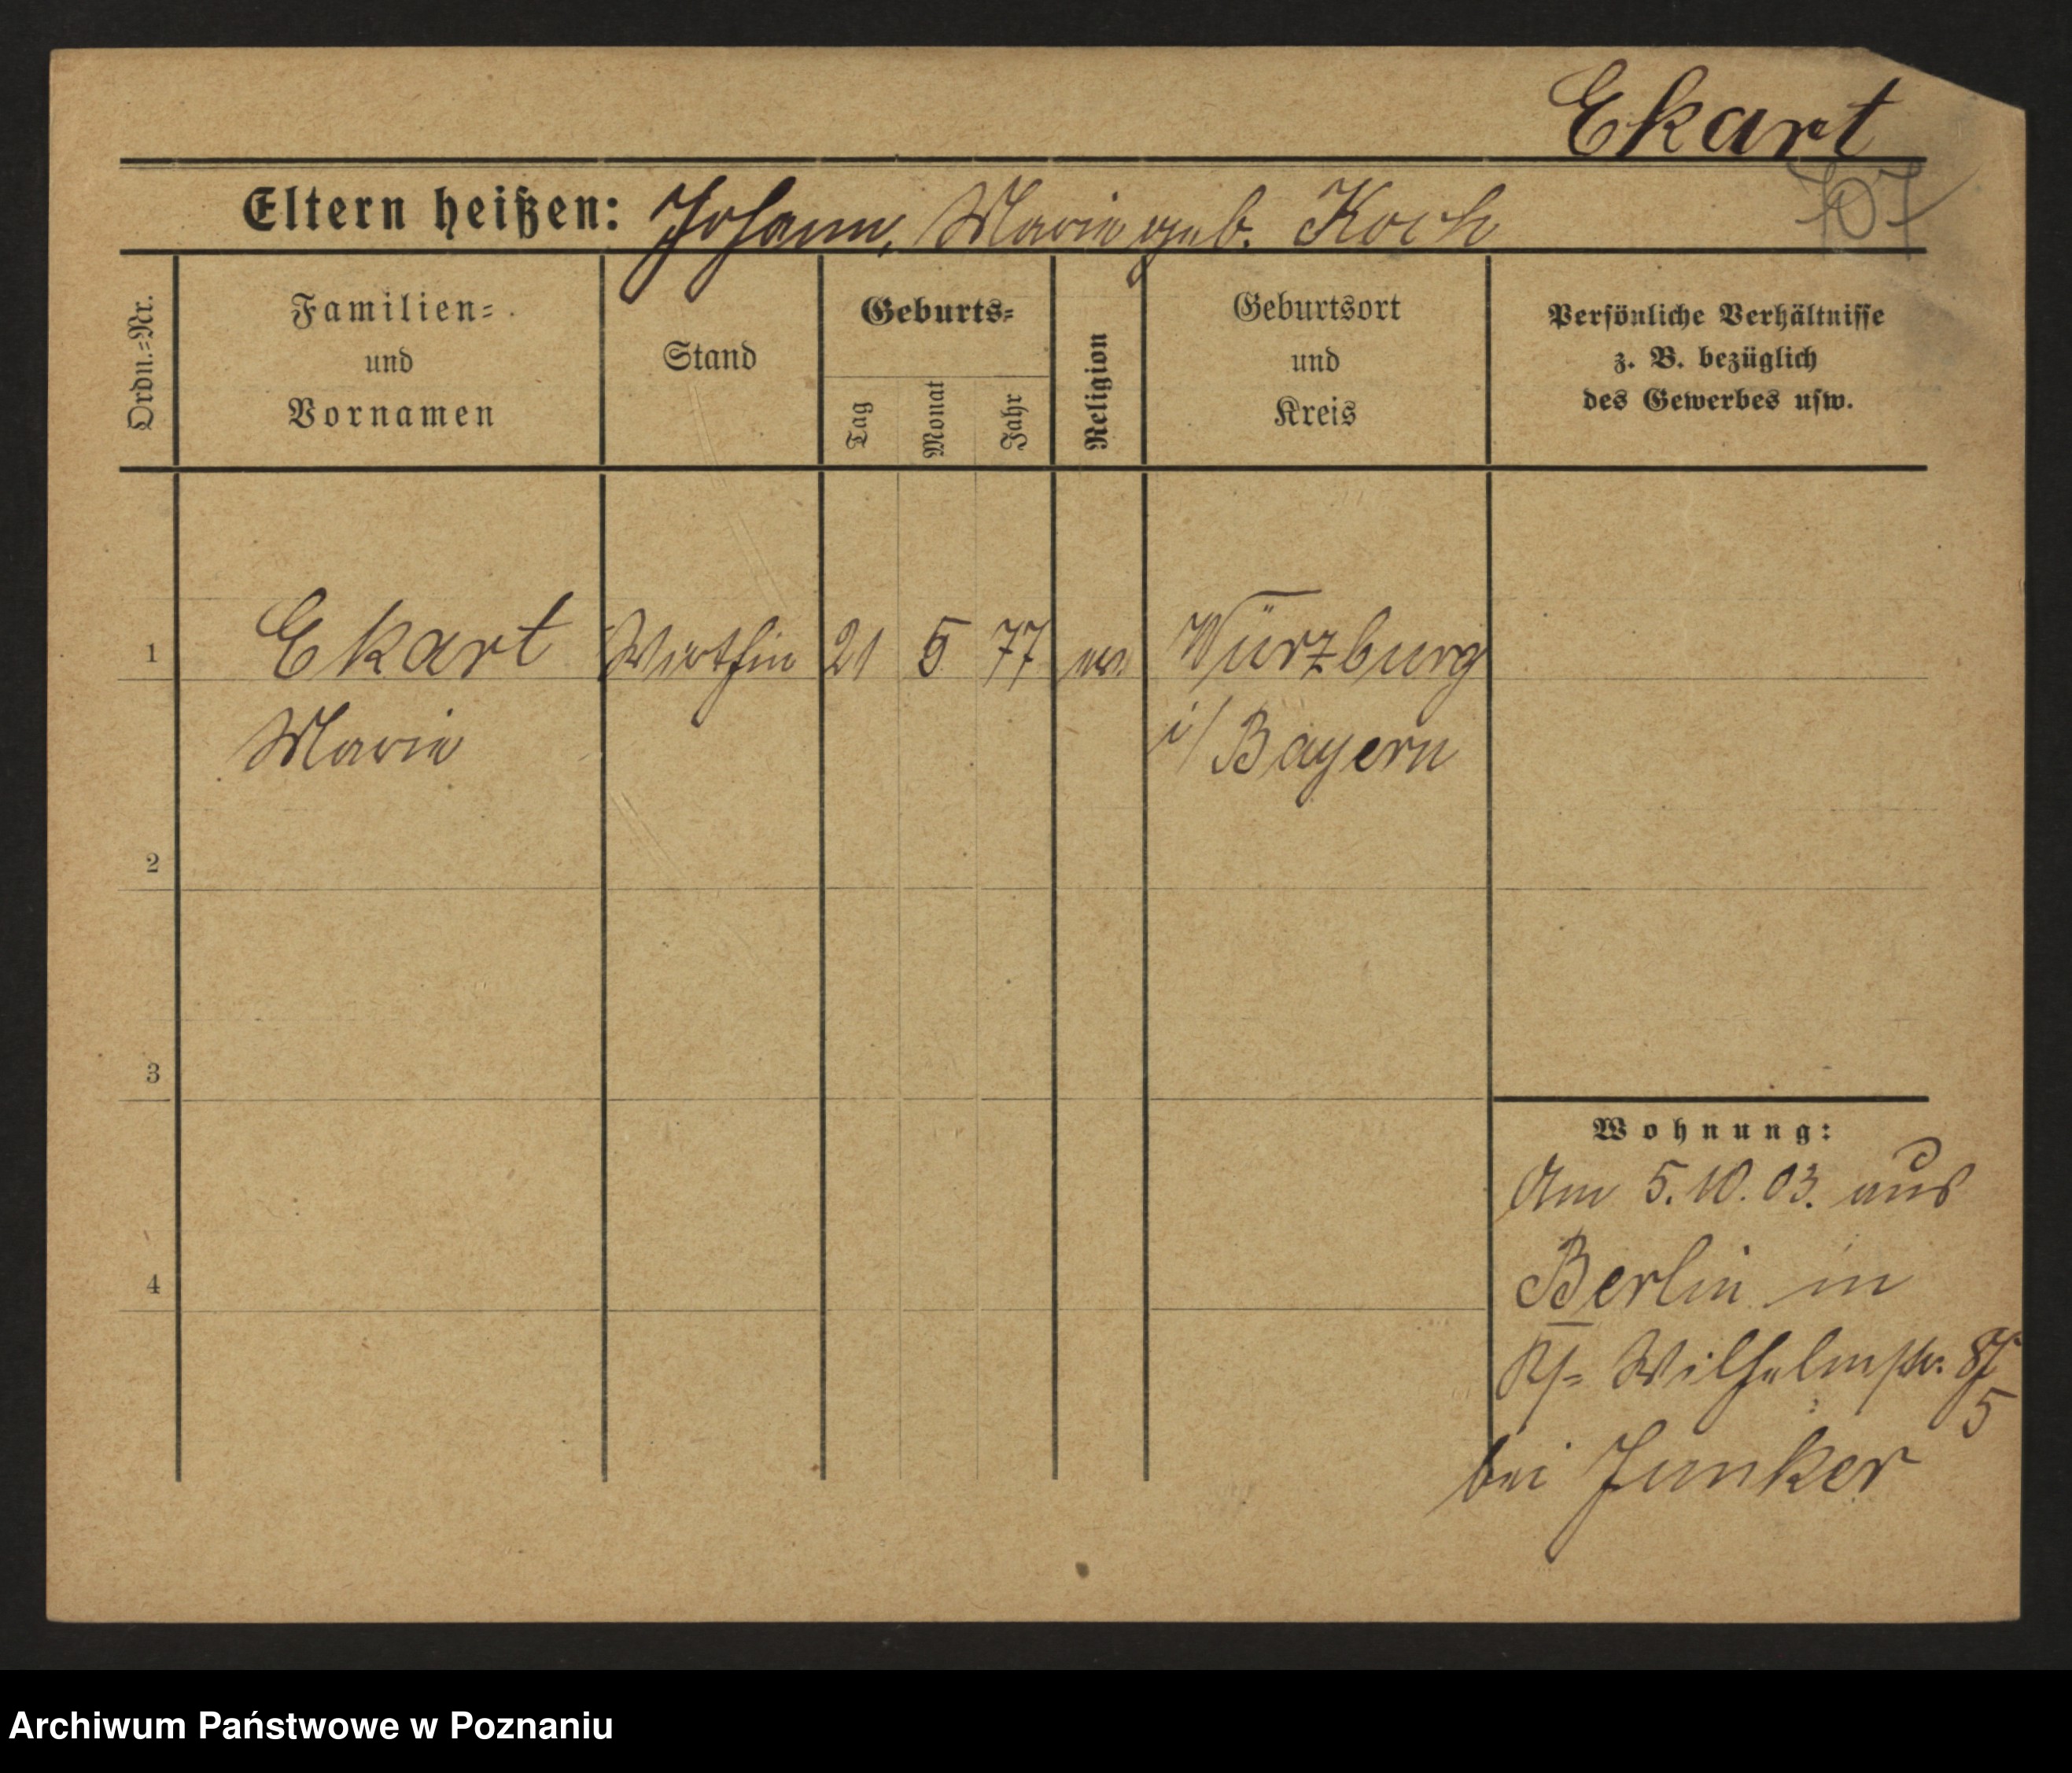 Ekart
707
Eltern heißen: Johann, Marie geb. Koch
Ordn.=Nr.
Familien=
und
Vornamen
Stand
Geburts=
Tag
Monat
Jahr
Religion
Geburtsort
und
Kreis
Persönliche Verhältnisse
z. B. bezüglich
des Gewerbes usw.
1 Ekart Wirthin 21 5 77 ev. Würzburg
Marie i/ Bayern
2
3
4
Wohnung:
Am 5.10.03. aus
Berlin in
Wilhelmstr.
5
bei Junker
Archiwum Państwowe w Poznaniu